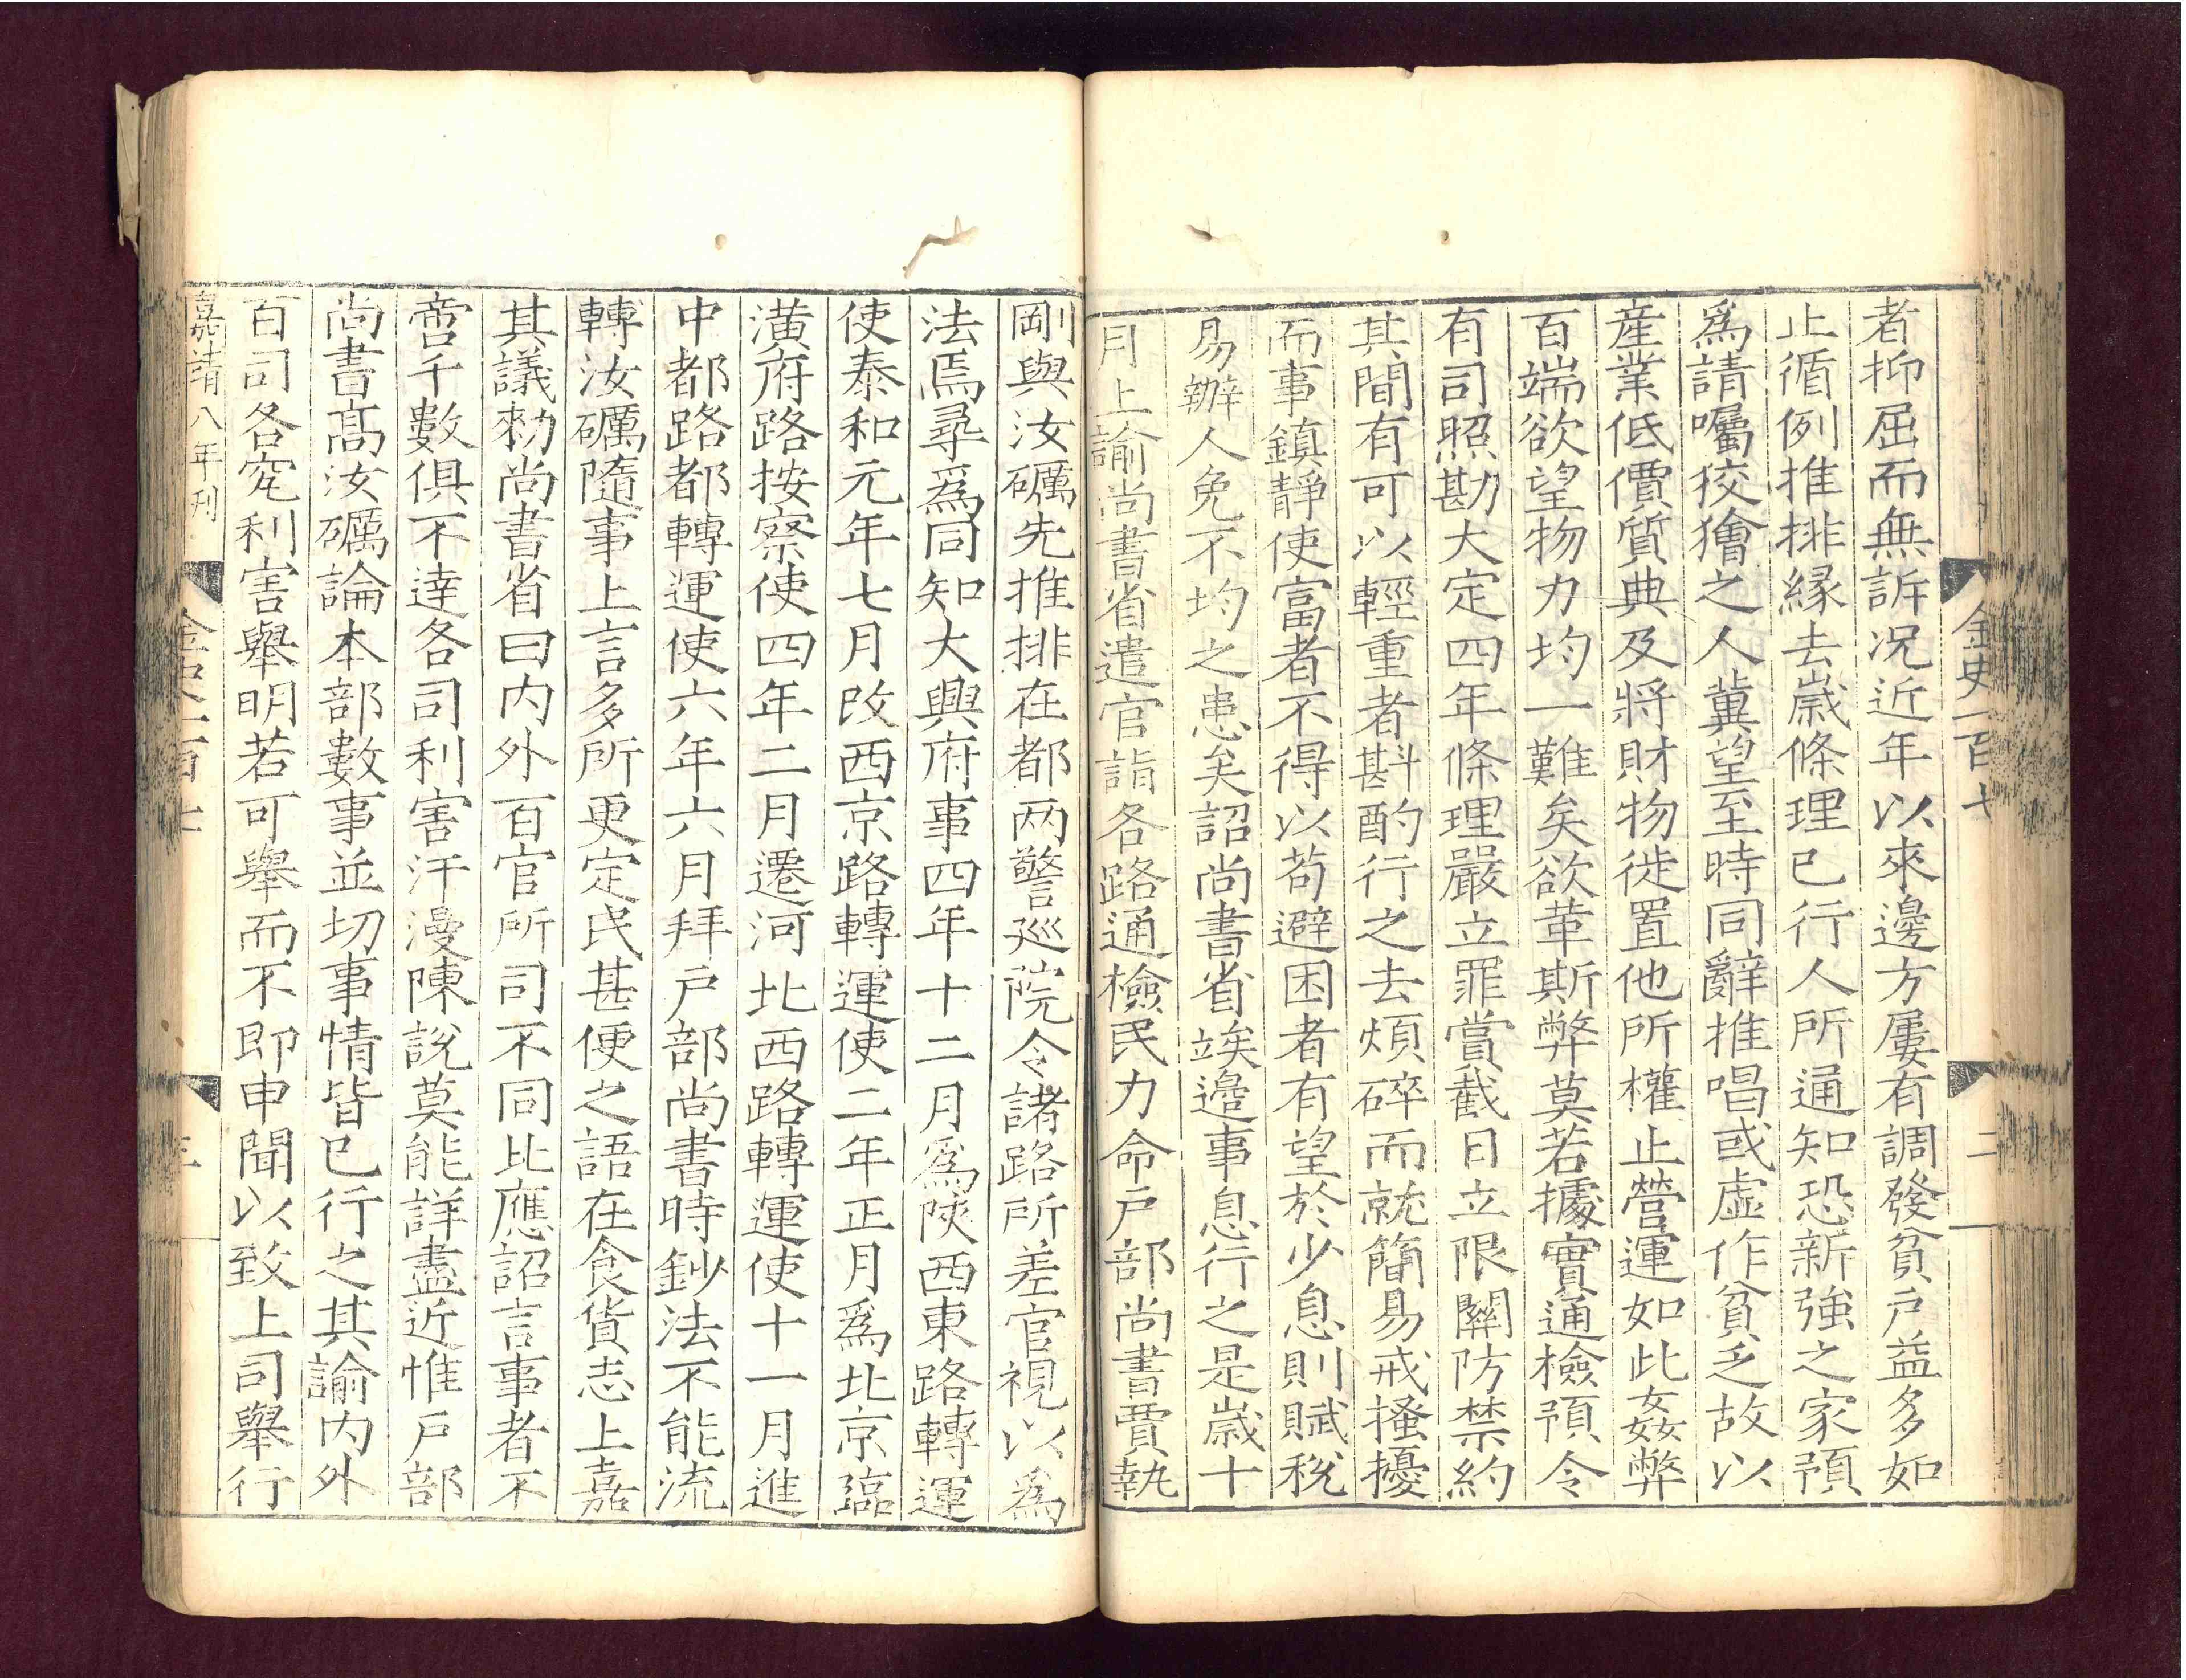 金史一百七
二
者抑屈而無訴况近年以來邊方屢有調發貧户益多如
止循例推排縁去歲條理已行人所通知恐新強之家預
爲請囑狡獪之人冀望至時同辭推唱或虛作貧乏故以
産業低價質典及將財物徙置他所權止營運如此姦弊
百端欲望物力均一難矣欲革斯弊莫若據實通檢預令
有司照勘大定四年條理嚴立罪賞截日立限關防禁約
其間有可以輕重者斟酌行之去煩碎而就簡易戒搔擾
而事鎮靜使富者不得以苟避困者有望於少息則賦稅
易辦人免不均之患矣詔尚書省竢邊事息行之是歲十
月上諭尚書省遣官詣各路通檢民力命户部尚書賈執
剛與汝礪先推排在都两警巡院令諸路所差官視以爲
法焉尋爲同知大興府事四年十二月爲陝西東路轉運
使泰和元年七月改西京路轉運使二年正月爲北京臨
潢府路按察使四年二月遷河北西路轉運使十一月進
中都路都轉運使六年六月拜户部尚書時鈔法不能流
轉汝礪隨事上言多所更定民甚便之語在食貨志上嘉
其議勑尚書省曰内外百官所司不同比應詔言事者不
啻千數俱不逹各司利害汗漫陳説莫能詳盡近惟户部
尚書髙汝礪論本部數事並切事情皆已行之其諭内外
百司各究利害舉明若可舉而不即申聞以致上司舉行
嘉靖八年刊
金史一百七
三